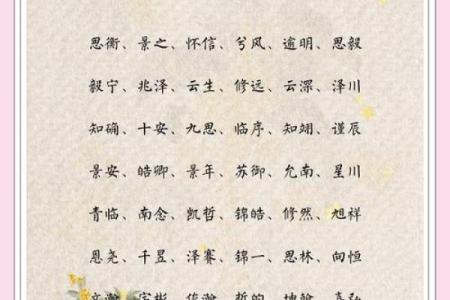 思衡、景之、怀信、兮风、逾明、思毅
毅宁、兆泽、云生、修远、云深、泽川
知确、十安、九思、临序、知翊、谨辰
景安、皓卿、景年、苏御、允南、星川
青临、南念、凯哲、锦皓、修然、旭祥
恩尧、千昱、泽赛、锦一、思林、向恒